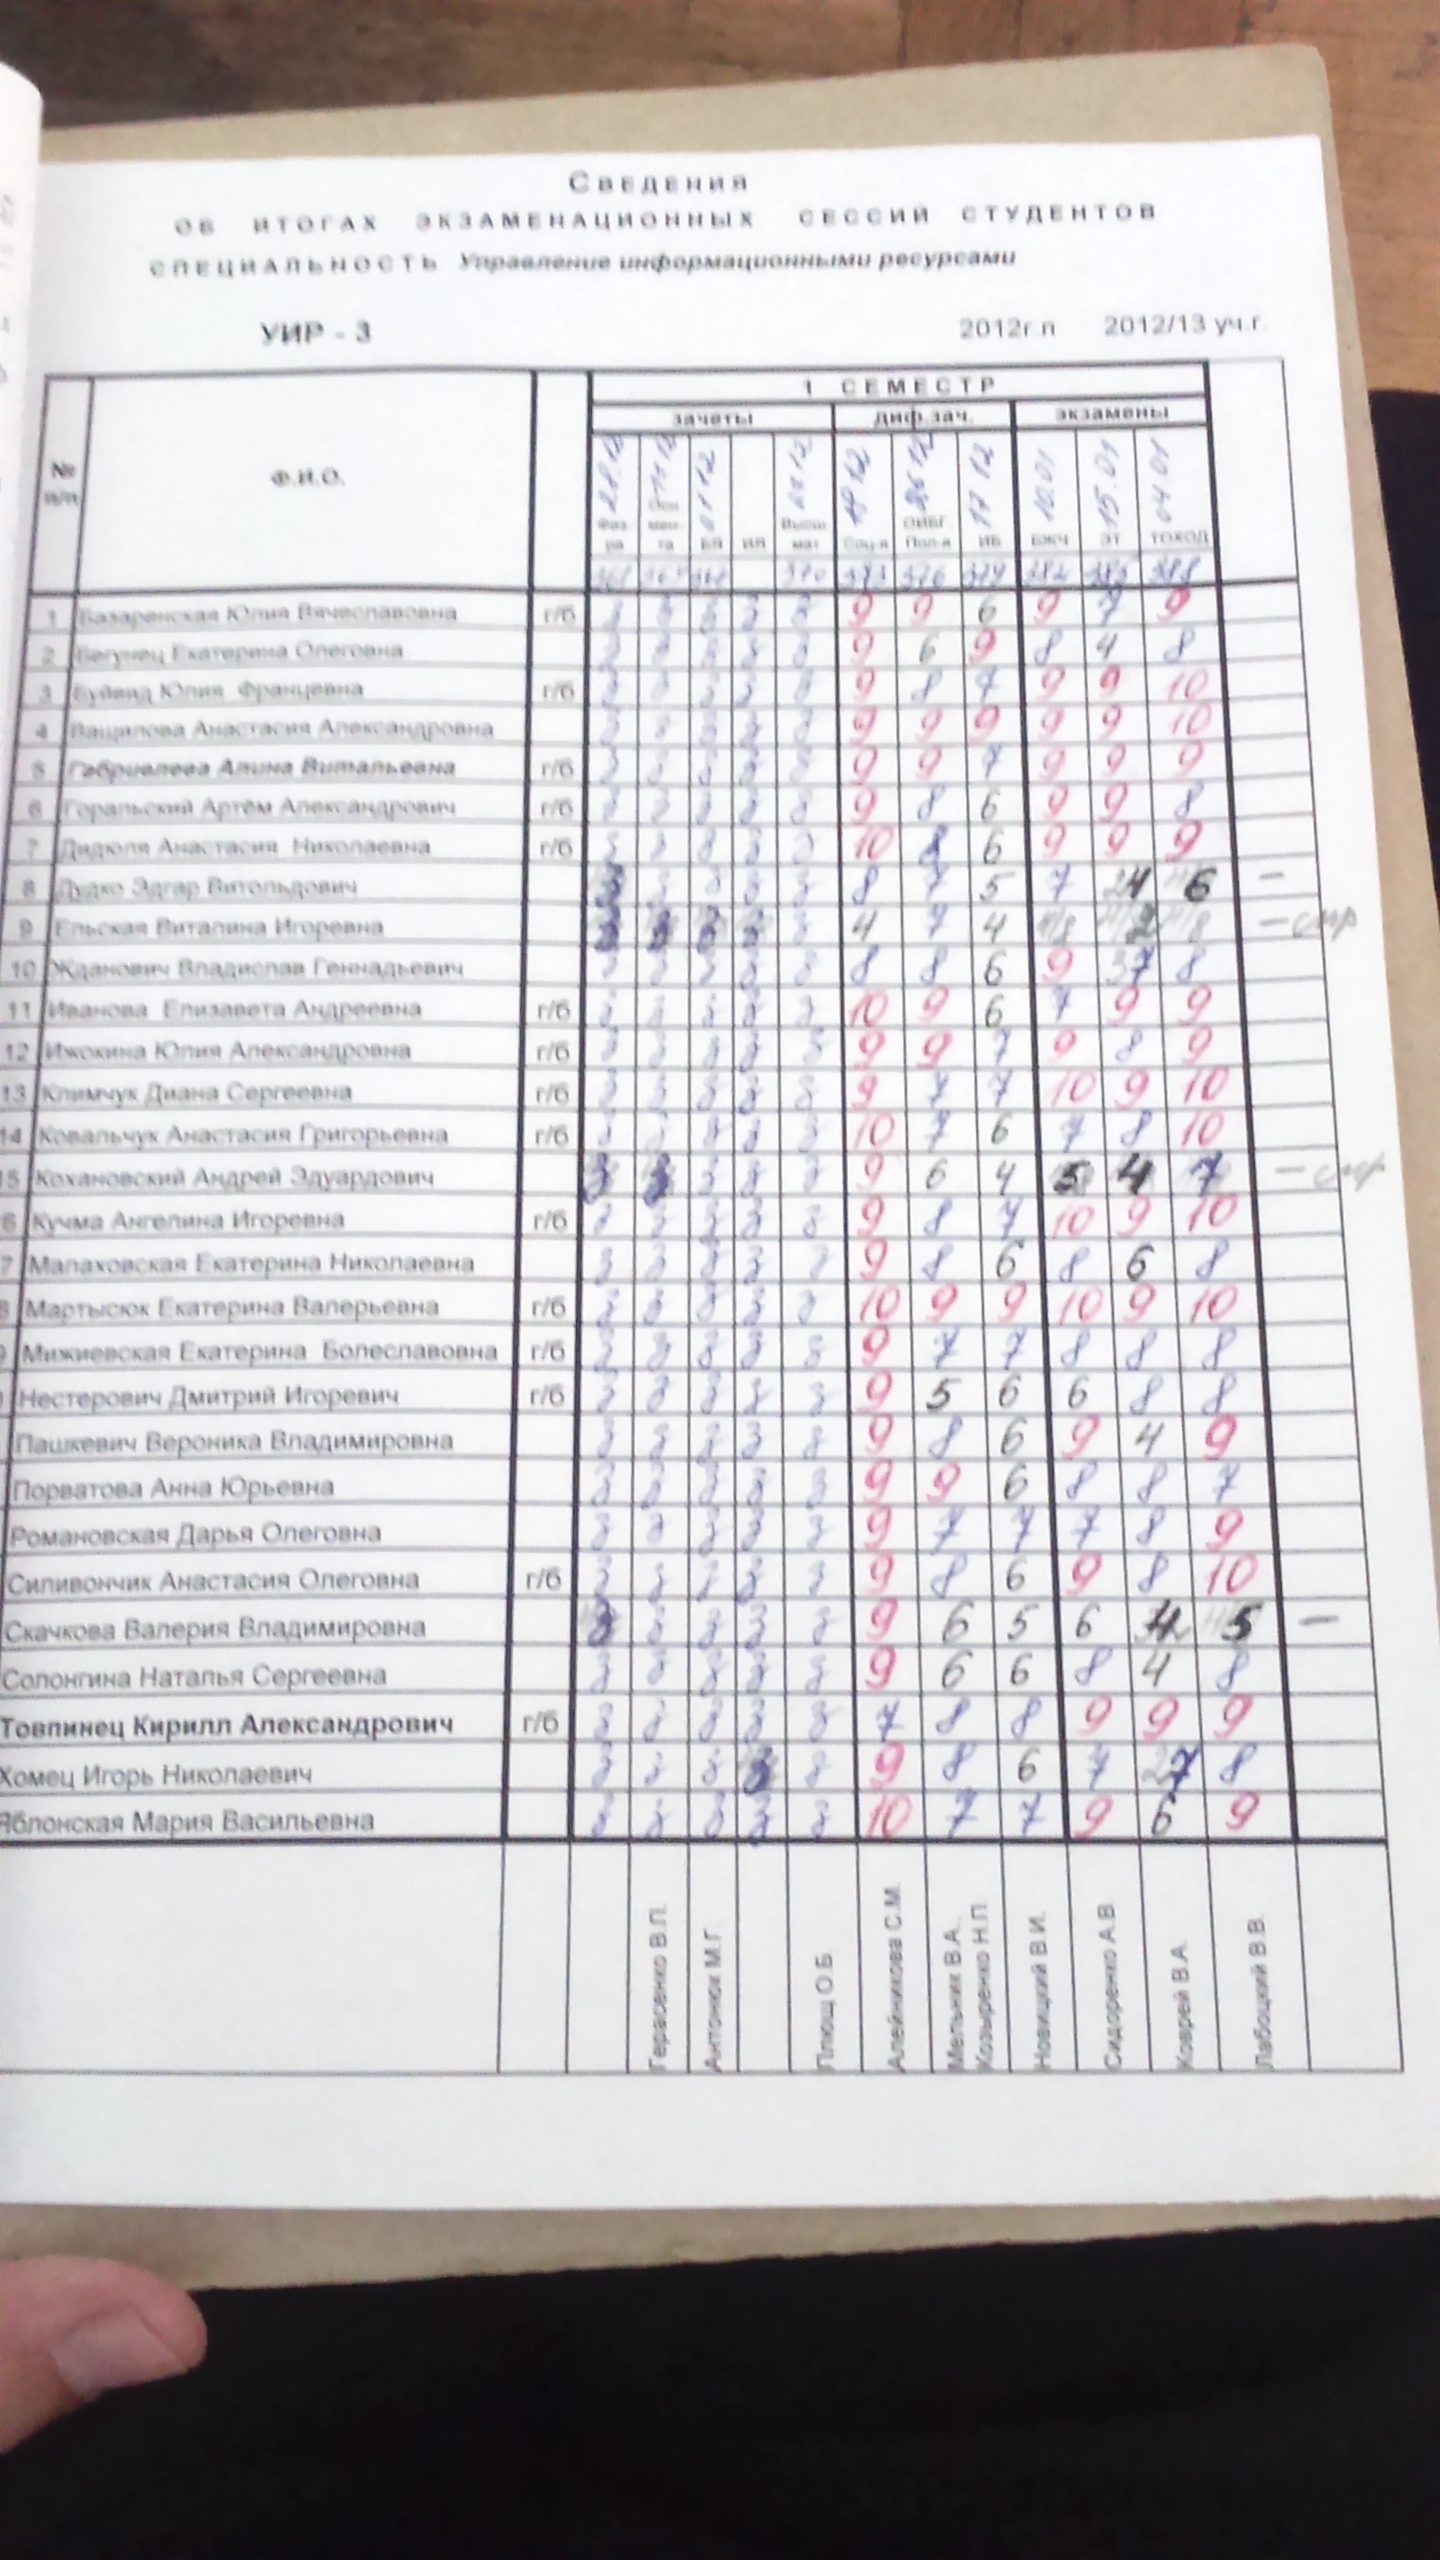 Сведения
об итогах экзаменационных сессий студентов
специальность Управление информационными ресурсами
УИР - 3 2012г.п 2012/13 уч.г.
1 СЕМЕСТР
зачеты диф.зач. экзамены
№ п/п Ф.И.О. Физ-ра Осн. мен-та БЯ ИЯ Высш мат Соц-я ОИБГ Пол-я ИБ БЖЧ ЭТ ТОХОД
19 12 17 12 10.01 15.01 04.01
1 Базаренская Юлия Вячеславовна г/б з з з з з 9 9 6 9 7 9
2 Бегунец Екатерина Олеговна з з з з з 9 6 9 8 4 8
3 Буйвид Юлия Францевна г/б з з з з з 9 8 7 9 9 10
4 Ващилова Анастасия Александровна з з з з з 9 9 9 9 9 10
5 Габриелева Алина Витальевна г/б з з з з з 9 9 7 9 9 9
6 Горальский Артём Александрович г/б з з з з з 9 8 6 9 9 8
7 Дидюля Анастасия Николаевна г/б з з з з з 10 8 6 9 9 9
8 Дудко Эдгар Витольдович з з з з з 8 7 5 7 4 6 –
9 Ельская Виталина Игоревна з з з з з 4 7 4
10 Жданович Владислав Геннадьевич з з з з з 8 8 6 9 7 8
11 Иванова Елизавета Андреевна г/б з з з з з 10 9 6 7 9 9
12 Ижокина Юлия Александровна г/б з з з з з 9 9 7 9 8 9
13 Климчук Диана Сергеевна г/б з з з з з 9 7 7 10 9 10
14 Ковальчук Анастасия Григорьевна г/б з з з з з 10 7 6 7 8 10
15 Кохановский Андрей Эдуардович з з з з з 9 6 4 5 4 7 –
6 Кучма Ангелина Игоревна г/б з з з з з 9 8 7 10 9 10
7 Малаховская Екатерина Николаевна з з з з з 9 8 6 8 6 8
8 Мартысюк Екатерина Валерьевна г/б з з з з з 10 9 9 10 9 10
9 Мижиевская Екатерина Болеславовна г/б з з з з з 9 7 7 8 8 8
Нестерович Дмитрий Игоревич г/б з з з з з 9 5 6 6 8 8
Пашкевич Вероника Владимировна з з з з з 9 8 6 9 4 9
Порватова Анна Юрьевна з з з з з 9 9 6 8 8 7
Романовская Дарья Олеговна з з з з з 9 7 7 7 8 9
Силивончик Анастасия Олеговна г/б з з з з з 9 8 6 9 8 10
Скачкова Валерия Владимировна з з з з з 9 6 5 6 4 5 –
Солонгина Наталья Сергеевна з з з з з 9 6 6 8 4 8
Товпинец Кирилл Александрович г/б з з з з з 7 8 8 9 9 9
Хомец Игорь Николаевич з з з з з 9 8 6 7 7 8
Яблонская Мария Васильевна з з з з з 10 7 7 9 6 9
Герасенко В.П. Антонюк М.Г. Плющ О.Б Алейникова С.М. Мельник В.А., Козыренко Н.П Новицкий В.И. Сидоренко А.В. Коврей В.А. Лабоцкий В.В.